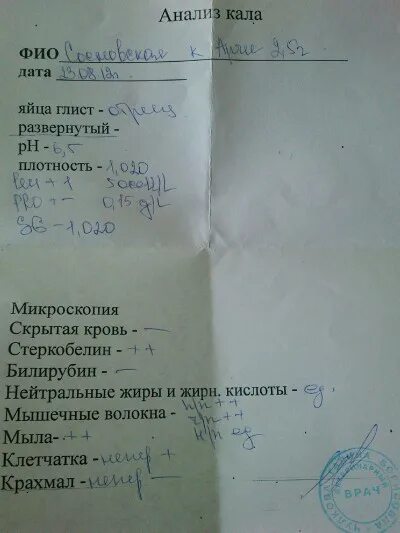 Анализ кала
ФИО Сосновская к Арчи 2,5г
дата 13.08.12г.
яйца глист - отриц
развернутый -
рН - 6,5
плотность - 1,020
leu + 1 500
PRO + - 0,15 g/L
SG - 1,020
Микроскопия
Скрытая кровь - —
Стеркобелин - ++
Билирубин - —
Нейтральные жиры и жирн. кислоты - ед.
Мышечные волокна - п/п ++
ч/п ++
н/п ед
Мыла- ++
Клетчатка - непер +
Крахмал - непер —
ВРАЧ